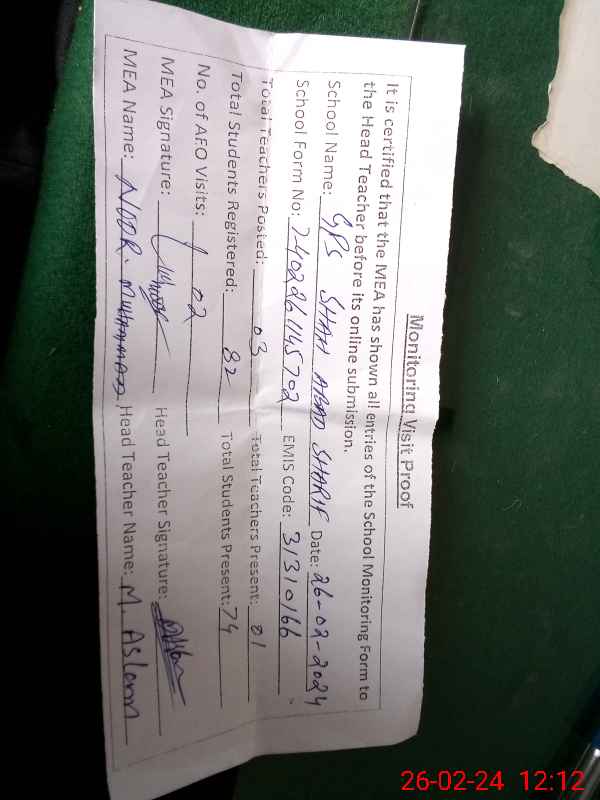 Monitoring Visit Proof
It is certified that the MEA has shown all entries of the School Monitoring Form to
the Head Teacher before its online submission.
School Name: GPS SHAH ABAD SHARIF Date: 26-02-2024
School Form No: EMIS Code: 31310166
Total Teachers Posted: 03 Total Teachers Present: 01
Total Students Registered: 82 Total Students Present: 74
No. of AEO Visits: 02
MEA Signature: Head Teacher Signature:
MEA Name: NOOR. MUHAMMAD Head Teacher Name: M. ASlam
26-02-24 12:12